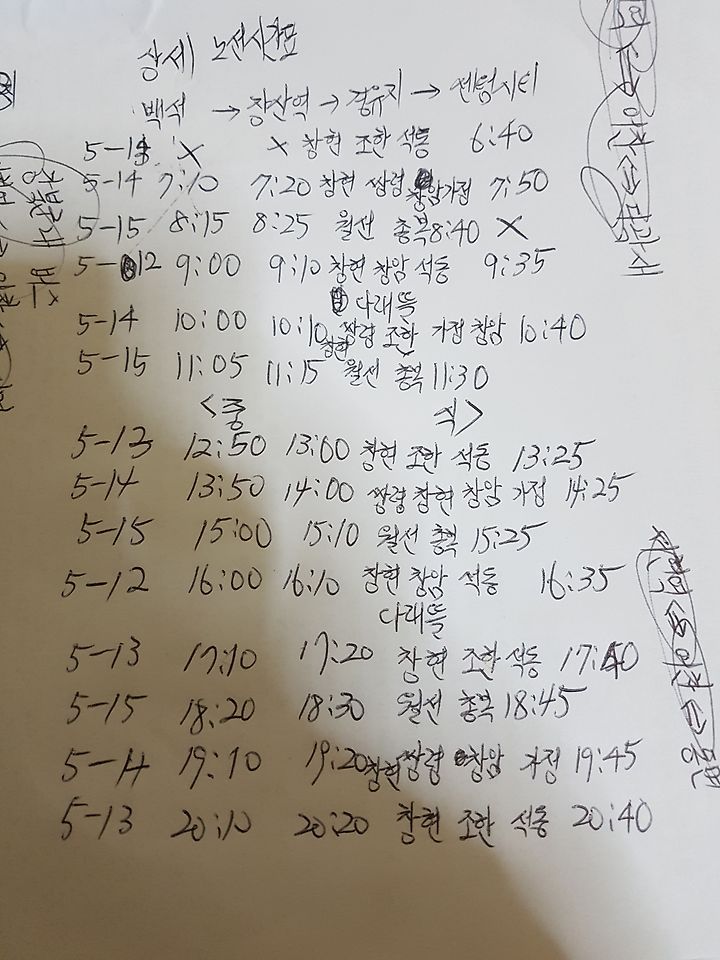 상세 노선시간표
백석 → 장산역 → 경유지 → 센텀시티
5-13 X X 창현 조한 석동 6:40
5-14 7:10 7:20 창현 쌍령 창암가정 7:50
5-15 8:15 8:25 월선 총복 8:40 X
5-12 9:00 9:10 창현 창암 석동 9:35
다래뜰
5-14 10:00 10:10 쌍령 조한 가정 창암 10:40
창현
5-15 11:05 11:15 월선 총복 11:30
<중 식>
5-13 12:50 13:00 창현 조한 석동 13:25
5-14 13:50 14:00 쌍령 창현 창암 가정 14:25
5-15 15:00 15:10 월선 총복 15:25
5-12 16:00 16:10 창현 창암 석동 16:35
다래뜰
5-13 17:10 17:20 창현 조한 석동 17:40
5-15 18:20 18:30 월선 총복 18:45
5-14 19:10 19:20 창현 쌍령 창암 가정 19:45
5-13 20:10 20:20 창현 조한 석동 20:40